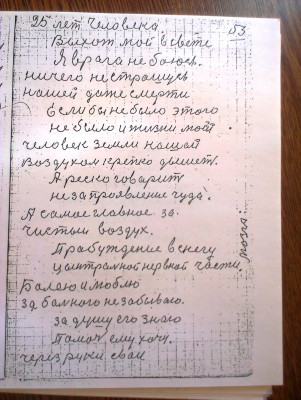 25 лет Человека
53
Выхот мой в свете
Я врага не боюсь.
ничего не страшусь
нашей даже смерти
Если бы не было этого
не было и жизни моей
человек земли нашей
воздухом крепко дышет.
А реско говарит
не за проявление чуда.
А самое главное за
чистый воздух.
Прабуждение в снегу
центральной нервной части мозга.
Балею и люблю
за балного не забываю.
за душу его знаю
Памоч ему хочу.
через руки сваи